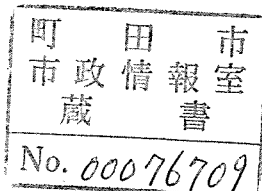 町田市
市政情報室
蔵書
No. 00076709